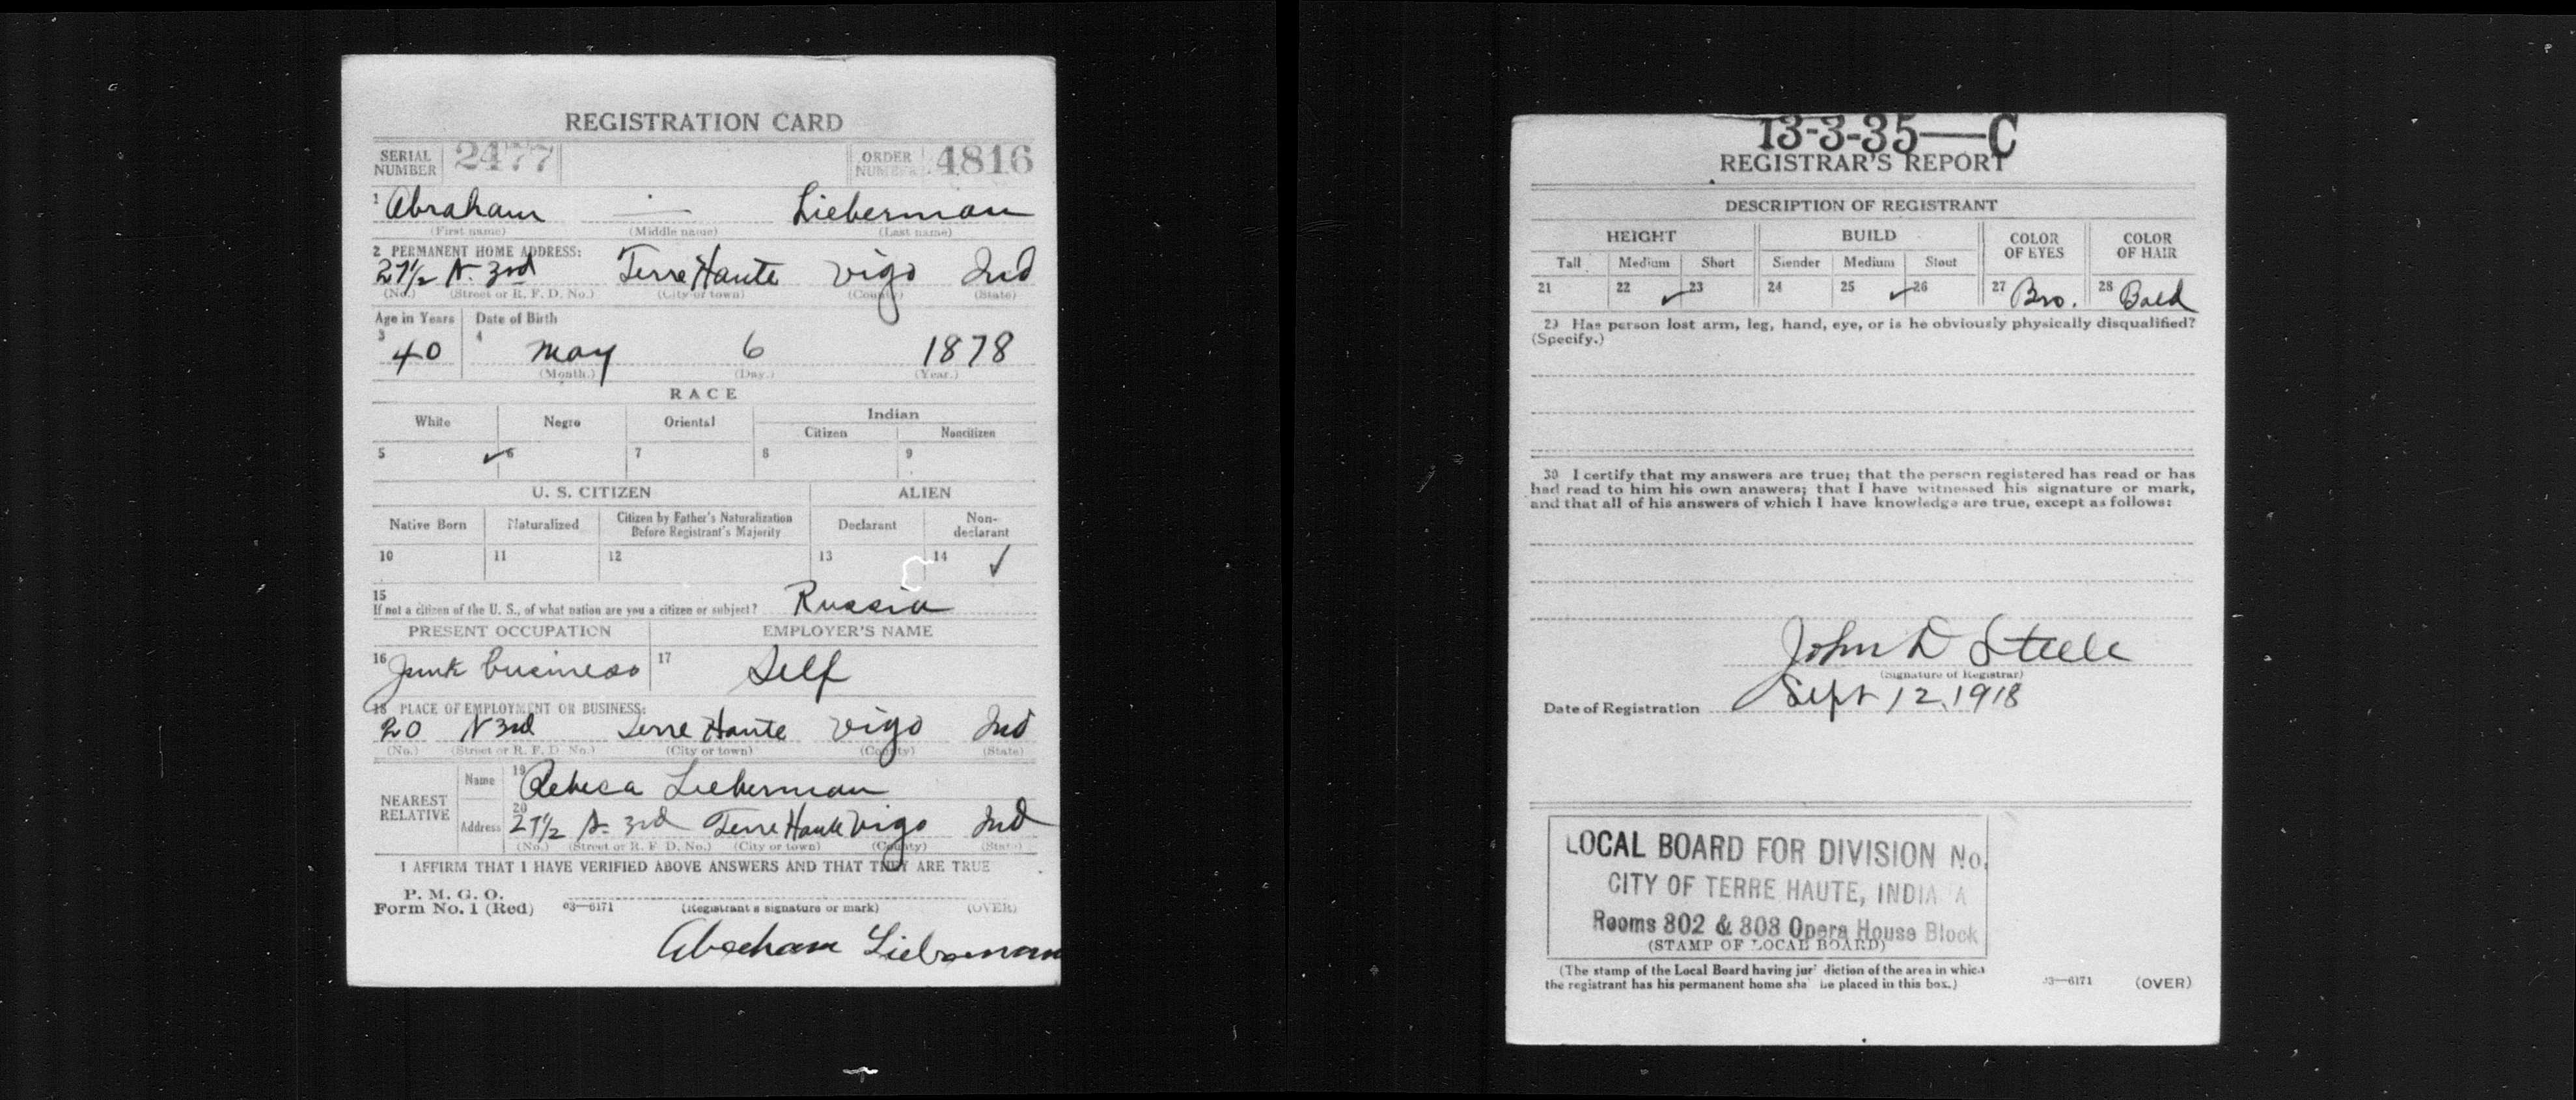 REGISTRATION CARD
SERIAL NUMBER 2477 ORDER NUMBER 4816
1 Abraham — Lieberman
(First name) (Middle name) (Last name)
2 PERMANENT HOME ADDRESS:
27½ N. 3rd Terre Haute Vigo Ind
(No.) (Street or R. F. D. No.) (City or town) (County) (State)
Age in Years Date of Birth
3 40 4 May 6 1878
(Month.) (Day.) (Year.)
RACE
White Negro Oriental Indian
Citizen Noncitizen
5 ✓ 6 7 8 9
U. S. CITIZEN ALIEN
Native Born Naturalized Citizen by Father's Naturalization Before Registrant's Majority Declarant Non-declarant
10 11 12 13 14 ✓
15
If not a citizen of the U. S., of what nation are you a citizen or subject? Russia
PRESENT OCCUPATION EMPLOYER'S NAME
16 Junk business 17 Self
18 PLACE OF EMPLOYMENT OR BUSINESS:
20 N 3rd Terre Haute Vigo Ind
(No.) (Street or R. F. D. No.) (City or town) (County) (State)
NEAREST RELATIVE
Name 19 Rebeca Lieberman
Address 20 27½ N. 3rd Terre Haute Vigo Ind
(No.) (Street or R. F. D. No.) (City or town) (County) (State)
I AFFIRM THAT I HAVE VERIFIED ABOVE ANSWERS AND THAT THEY ARE TRUE
P. M. G. O.
Form No. 1 (Red) 03—6171 (Registrant's signature or mark) (OVER)
Abraham Lieberman
13-3-35—C
REGISTRAR'S REPORT
DESCRIPTION OF REGISTRANT
HEIGHT BUILD COLOR OF EYES COLOR OF HAIR
Tall Medium Short Slender Medium Stout
21 22 ✓ 23 24 25 ✓ 26 27 Bro. 28 Bald
29 Has person lost arm, leg, hand, eye, or is he obviously physically disqualified?
(Specify.)
30 I certify that my answers are true; that the person registered has read or has
had read to him his own answers; that I have witnessed his signature or mark,
and that all of his answers of which I have knowledge are true, except as follows:
John D Steele
(Signature of Registrar)
Date of Registration Sept 12, 1918
LOCAL BOARD FOR DIVISION No.
CITY OF TERRE HAUTE, INDIANA
Rooms 802 & 803 Opera House Block
(STAMP OF LOCAL BOARD)
(The stamp of the Local Board having jurisdiction of the area in which
the registrant has his permanent home shall be placed in this box.)
03—6171 (OVER)